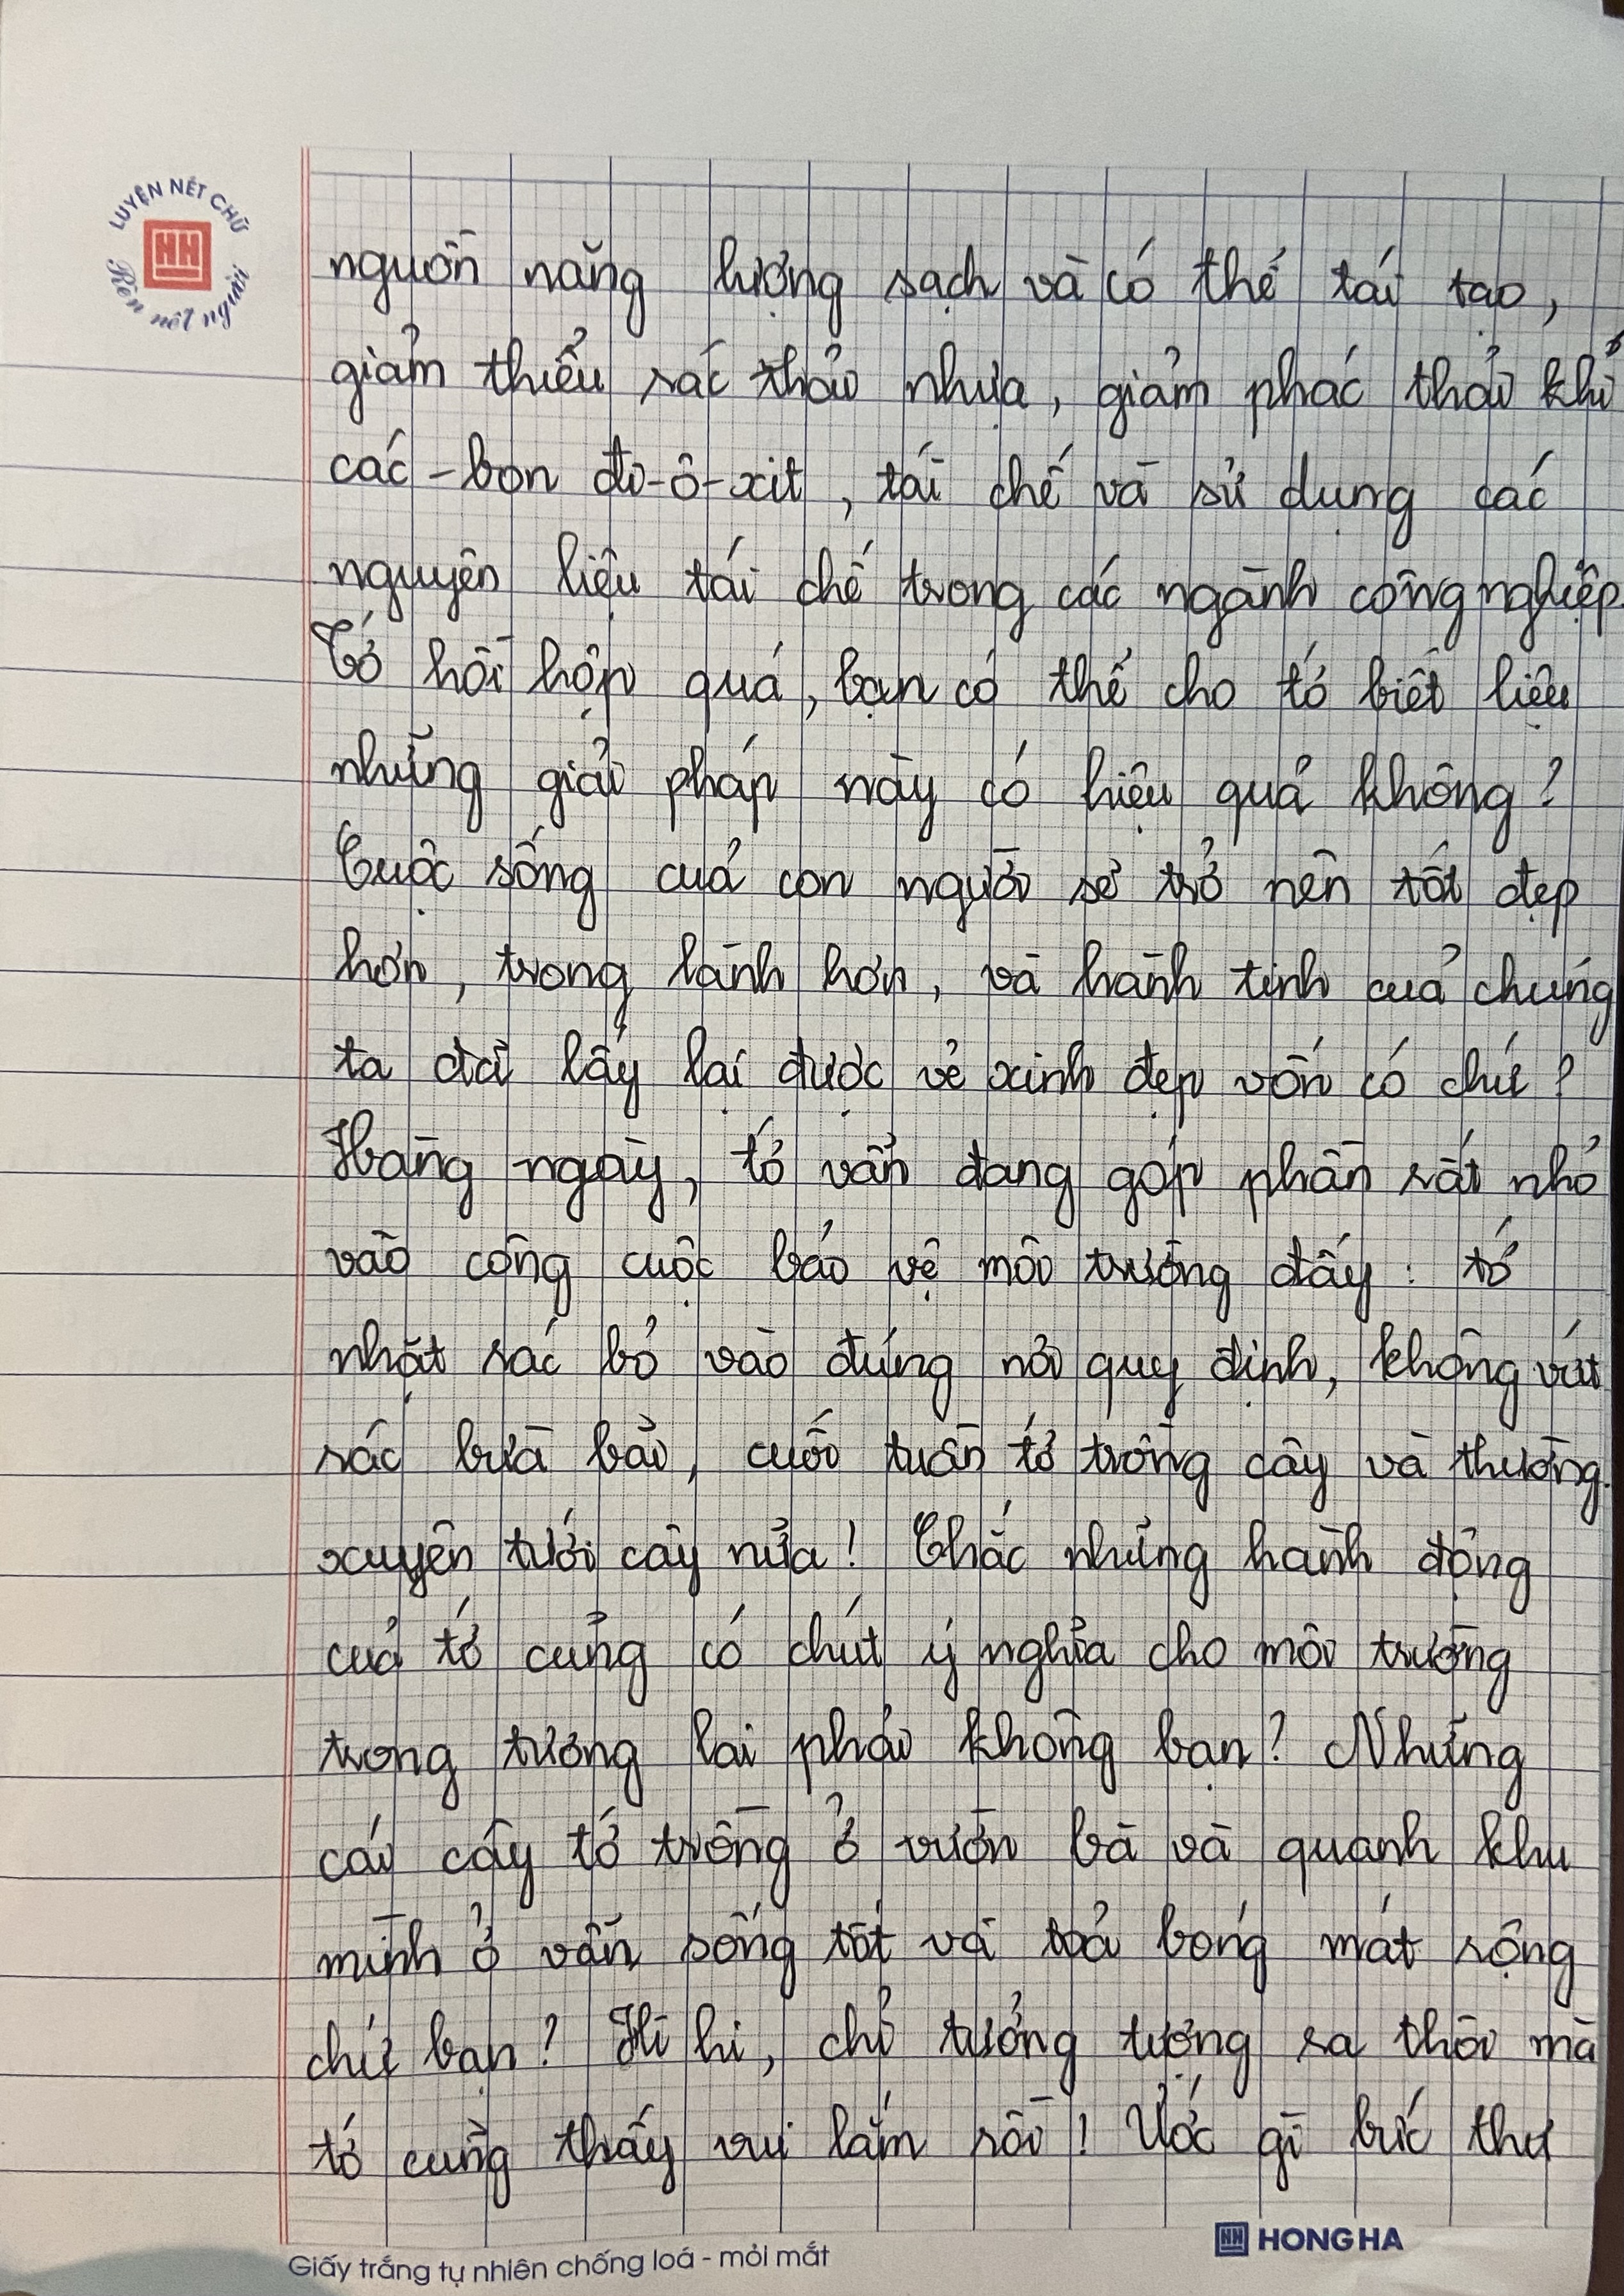 LUYỆN NÉT CHỮ
HH
Rèn nết người
nguồn năng lượng sạch và có thể tái tạo,
giảm thiểu rác thải nhựa, giảm phác thải khí
các-bon đi-ô-xit, tái chế và sử dụng các
nguyên liệu tái chế trong các ngành công nghiệp.
Tớ hồi hộp quá, bạn có thể cho tớ biết liệu
những giải pháp này có hiệu quả không?
Cuộc sống của con người sẽ trở nên tốt đẹp
hơn, trong lành hơn, và hành tinh của chúng
ta đã lấy lại được vẻ xinh đẹp vốn có chứ?
Hàng ngày, tớ vẫn đang góp phần rất nhỏ
vào công cuộc bảo vệ môi trường đấy: tớ
nhặt rác bỏ vào đúng nơi quy định, không vứt
rác bừa bãi, cuối tuần tớ trồng cây và thường
xuyên tưới cây nữa! Chắc những hành động
của tớ cũng có chút ý nghĩa cho môi trường
trong tương lai phải không bạn? Những
cái cây tớ trồng ở vườn bà và quanh khu
mình ở vẫn sống tốt và toả bóng mát rộng
chứ bạn? Hi hi, chỉ tưởng tượng ra thôi mà
tớ cũng thấy vui lắm rồi! Ước gì bức thư
HH HONG HA
Giấy trắng tự nhiên chống loá - mỏi mắt